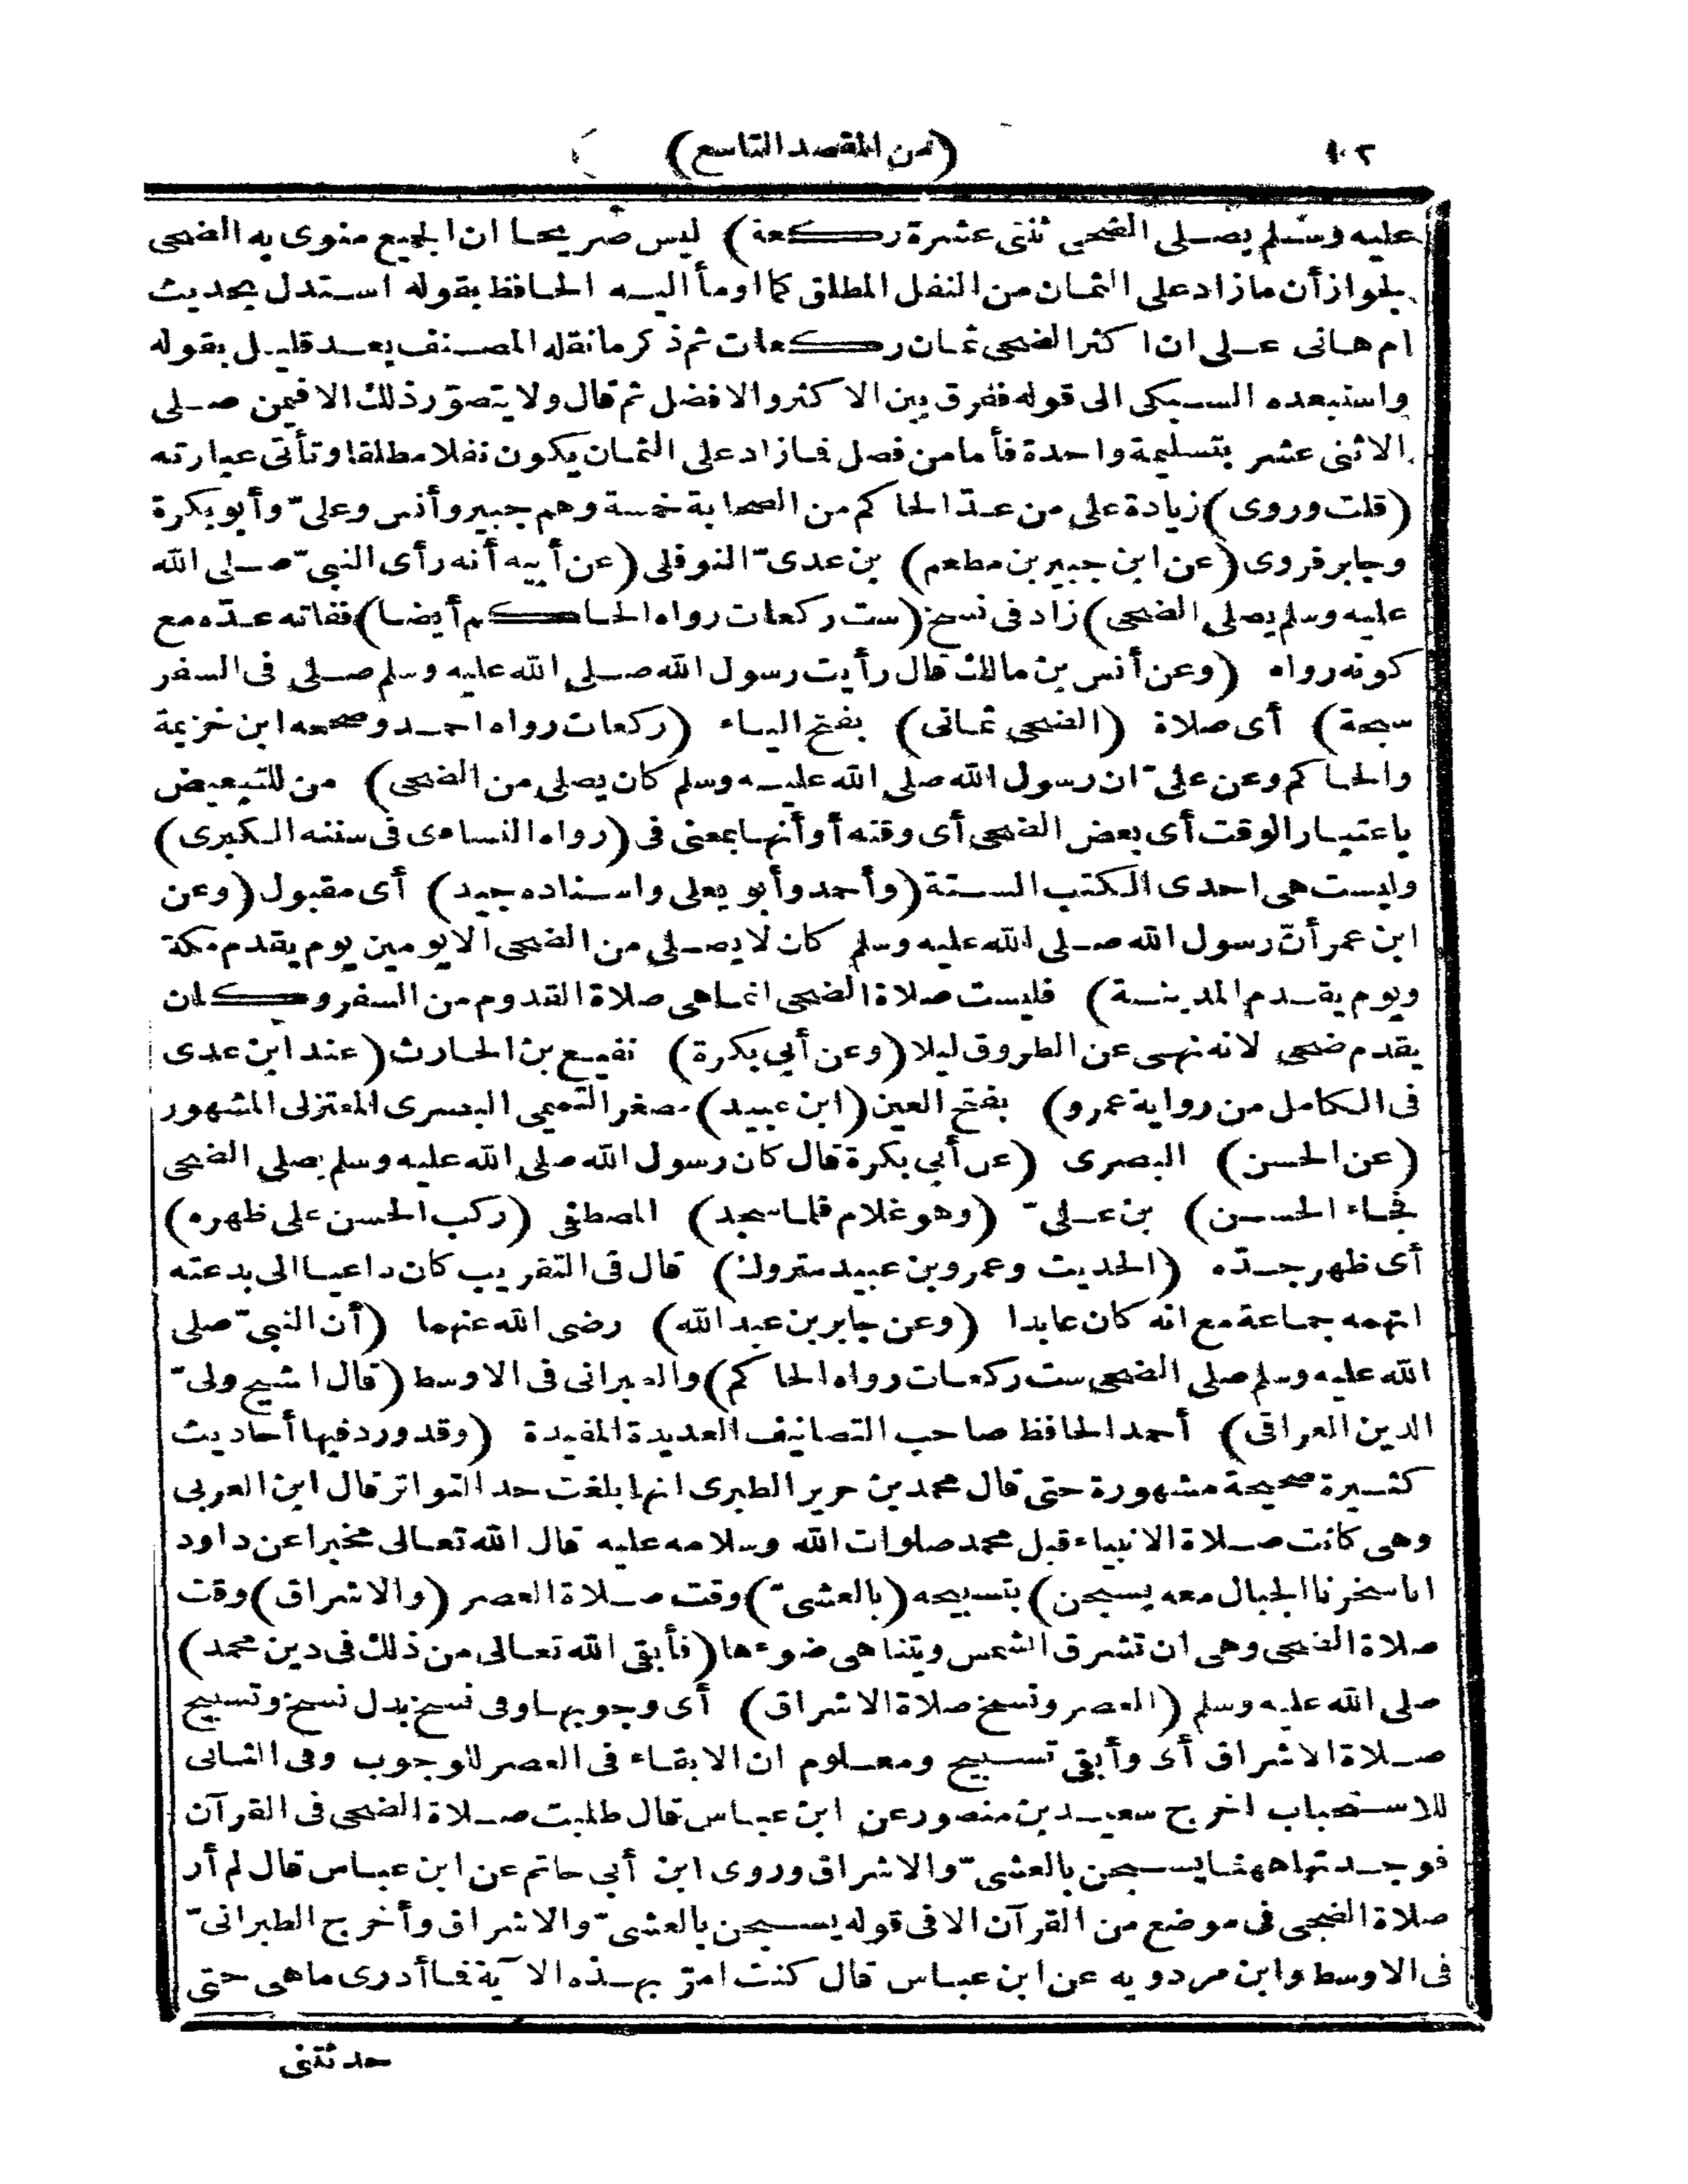 ١٠٢
(من المقصد التاسع)
عليه وسلم يصلى الضحى ثنتى عشرة ركعة) ليس صريحا ان الجميع منوى به الضحى
لجواز أن ما زاد على الثمان من النفل المطلق كما اومأ اليه الحافظ بقوله استدل بحديث
ام هانى على ان اكثر الضحى ثمان ركعات ثم ذكر ما نقله المصنف بعد قليل بقوله
واستبعده السبكى الى قوله ففرق بين الاكثر والافضل ثم قال ولا يتصوّر ذلك الا فيمن صلى
الاثنى عشر بتسليمة واحدة فأما من فصل فما زاد على الثمان يكون نفلا مطلقا وتأتى عبارته
(قلت وروى) زيادة على من عدّ الحاكم من الصحابة خمسة وهم جبير وأنس وعلىّ وأبو بكرة
وجابر فروى (عن ابن جبير بن مطعم) بن عدىّ النوفلى (عن أبيه أنه رأى النبىّ صلى الله
عليه وسلم يصلى الضحى) زاد فى نسخ (ست ركعات رواه الحاكم أيضا) ففاته عدّه مع
كونه رواه (وعن أنس بن مالك قال رأيت رسول الله صلى الله عليه وسلم صلى فى السفر
سبحة) أى صلاة (الضحى ثمانى) بفتح الياء (ركعات رواه احمد وصححه ابن خزيمة
والحاكم وعن علىّ ان رسول الله صلى الله عليه وسلم كان يصلى من الضحى) من للتبعيض
باعتبار الوقت أى بعض الضحى أى وقته أو أنها بمعنى فى (رواه النساءى فى سننه الكبرى)
وليست هى احدى الكتب الستة (وأحمد وأبو يعلى واسناده جيد) أى مقبول (وعن
ابن عمر أنّ رسول الله صلى الله عليه وسلم كان لا يصلى من الضحى الا يومين يوم يقدم مكة
ويوم يقدم المدينة) فليست صلاة الضحى انما هى صلاة القدوم من السفر وكان
يقدم ضحى لانه نهى عن الطروق ليلا (وعن أبى بكرة) نفيع بن الحارث (عند ابن عدى
فى الكامل من رواية عمرو) بفتح العين (ابن عبيد) مصغر التميمى البصرى المعتزلى المشهور
(عن الحسن) البصرى (عن أبى بكرة قال كان رسول الله صلى الله عليه وسلم يصلى الضحى
فجاء الحسن) بن علىّ (وهو غلام فلما سجد) المصطفى (ركب الحسن على ظهره)
أى ظهر جدّه (الحديث وعمرو بن عبيد متروك) قال فى التقريب كان داعيا الى بدعته
اتهمه جماعة مع انه كان عابدا (وعن جابر بن عبد الله) رضى الله عنهما (أن النبىّ صلى
الله عليه وسلم صلى الضحى ست ركعات رواه الحاكم) والطبرانى فى الاوسط (قال الشيخ ولىّ
الدين العراقى) أحمد الحافظ صاحب التصانيف العديدة المفيدة (وقد ورد فيها أحاديث
كثيرة صحيحة مشهورة حتى قال محمد بن جرير الطبرى انها بلغت حد التواتر قال ابن العربى
وهى كانت صلاة الانبياء قبل محمد صلوات الله وسلامه عليه قال الله تعالى مخبرا عن داود
انا سخرنا الجبال معه يسبحن) بتسبيحه (بالعشىّ) وقت صلاة العصر (والاشراق) وقت
صلاة الضحى وهى ان تشرق الشمس ويتناهى ضوءها (فأبقى الله تعالى من ذلك فى دين محمد)
صلى الله عليه وسلم (العصر ونسخ صلاة الاشراق) أى وجوبها وفى نسخ بدل نسخ وتسبيح
صلاة الاشراق أى وأبقى تسبيح ومعلوم ان الابقاء فى العصر للوجوب وفى الثانى
للاستحباب اخرج سعيد بن منصور عن ابن عباس قال طلبت صلاة الضحى فى القرآن
فوجدتها ههنا يسبحن بالعشىّ والاشراق وروى ابن أبى حاتم عن ابن عباس قال لم أر
صلاة الضحى فى موضع من القرآن الا فى قوله يسبحن بالعشىّ والاشراق وأخرج الطبرانىّ
فى الاوسط وابن مردويه عن ابن عباس قال كنت امرّ بهذه الآية فما أدرى ما هى حتى
حدثتنى